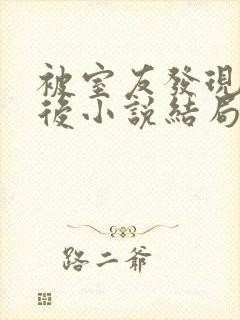 被室友發現
後小說結局
路二爺